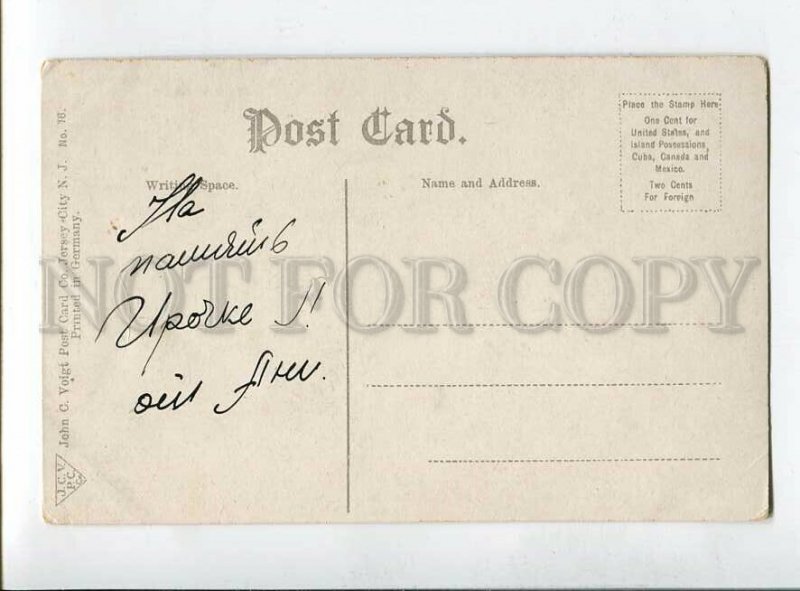 Post Card.
Writing Space.
Name and Address.
Place the Stamp Here
One Cent for
United States, and
Island Possessions,
Cuba, Canada and
Mexico.
Two Cents
For Foreign
На
память
Ирочке
от Яны.
John C. Voigt Post Card Co. Jersey City N. J. No. 76.
Printed in Germany.
J.C.V.
P.C.
Co.
NOT FOR COPY